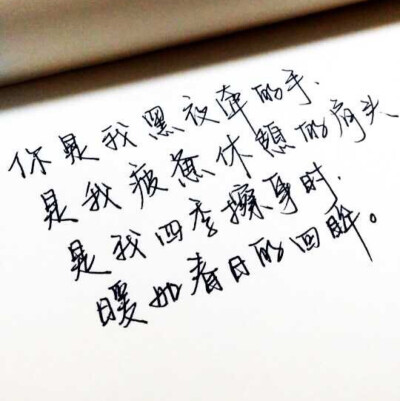 你是我黑夜牵的手.
是我疲惫休憩的肩头
是我四季擦身时.
暖如春日的回眸。